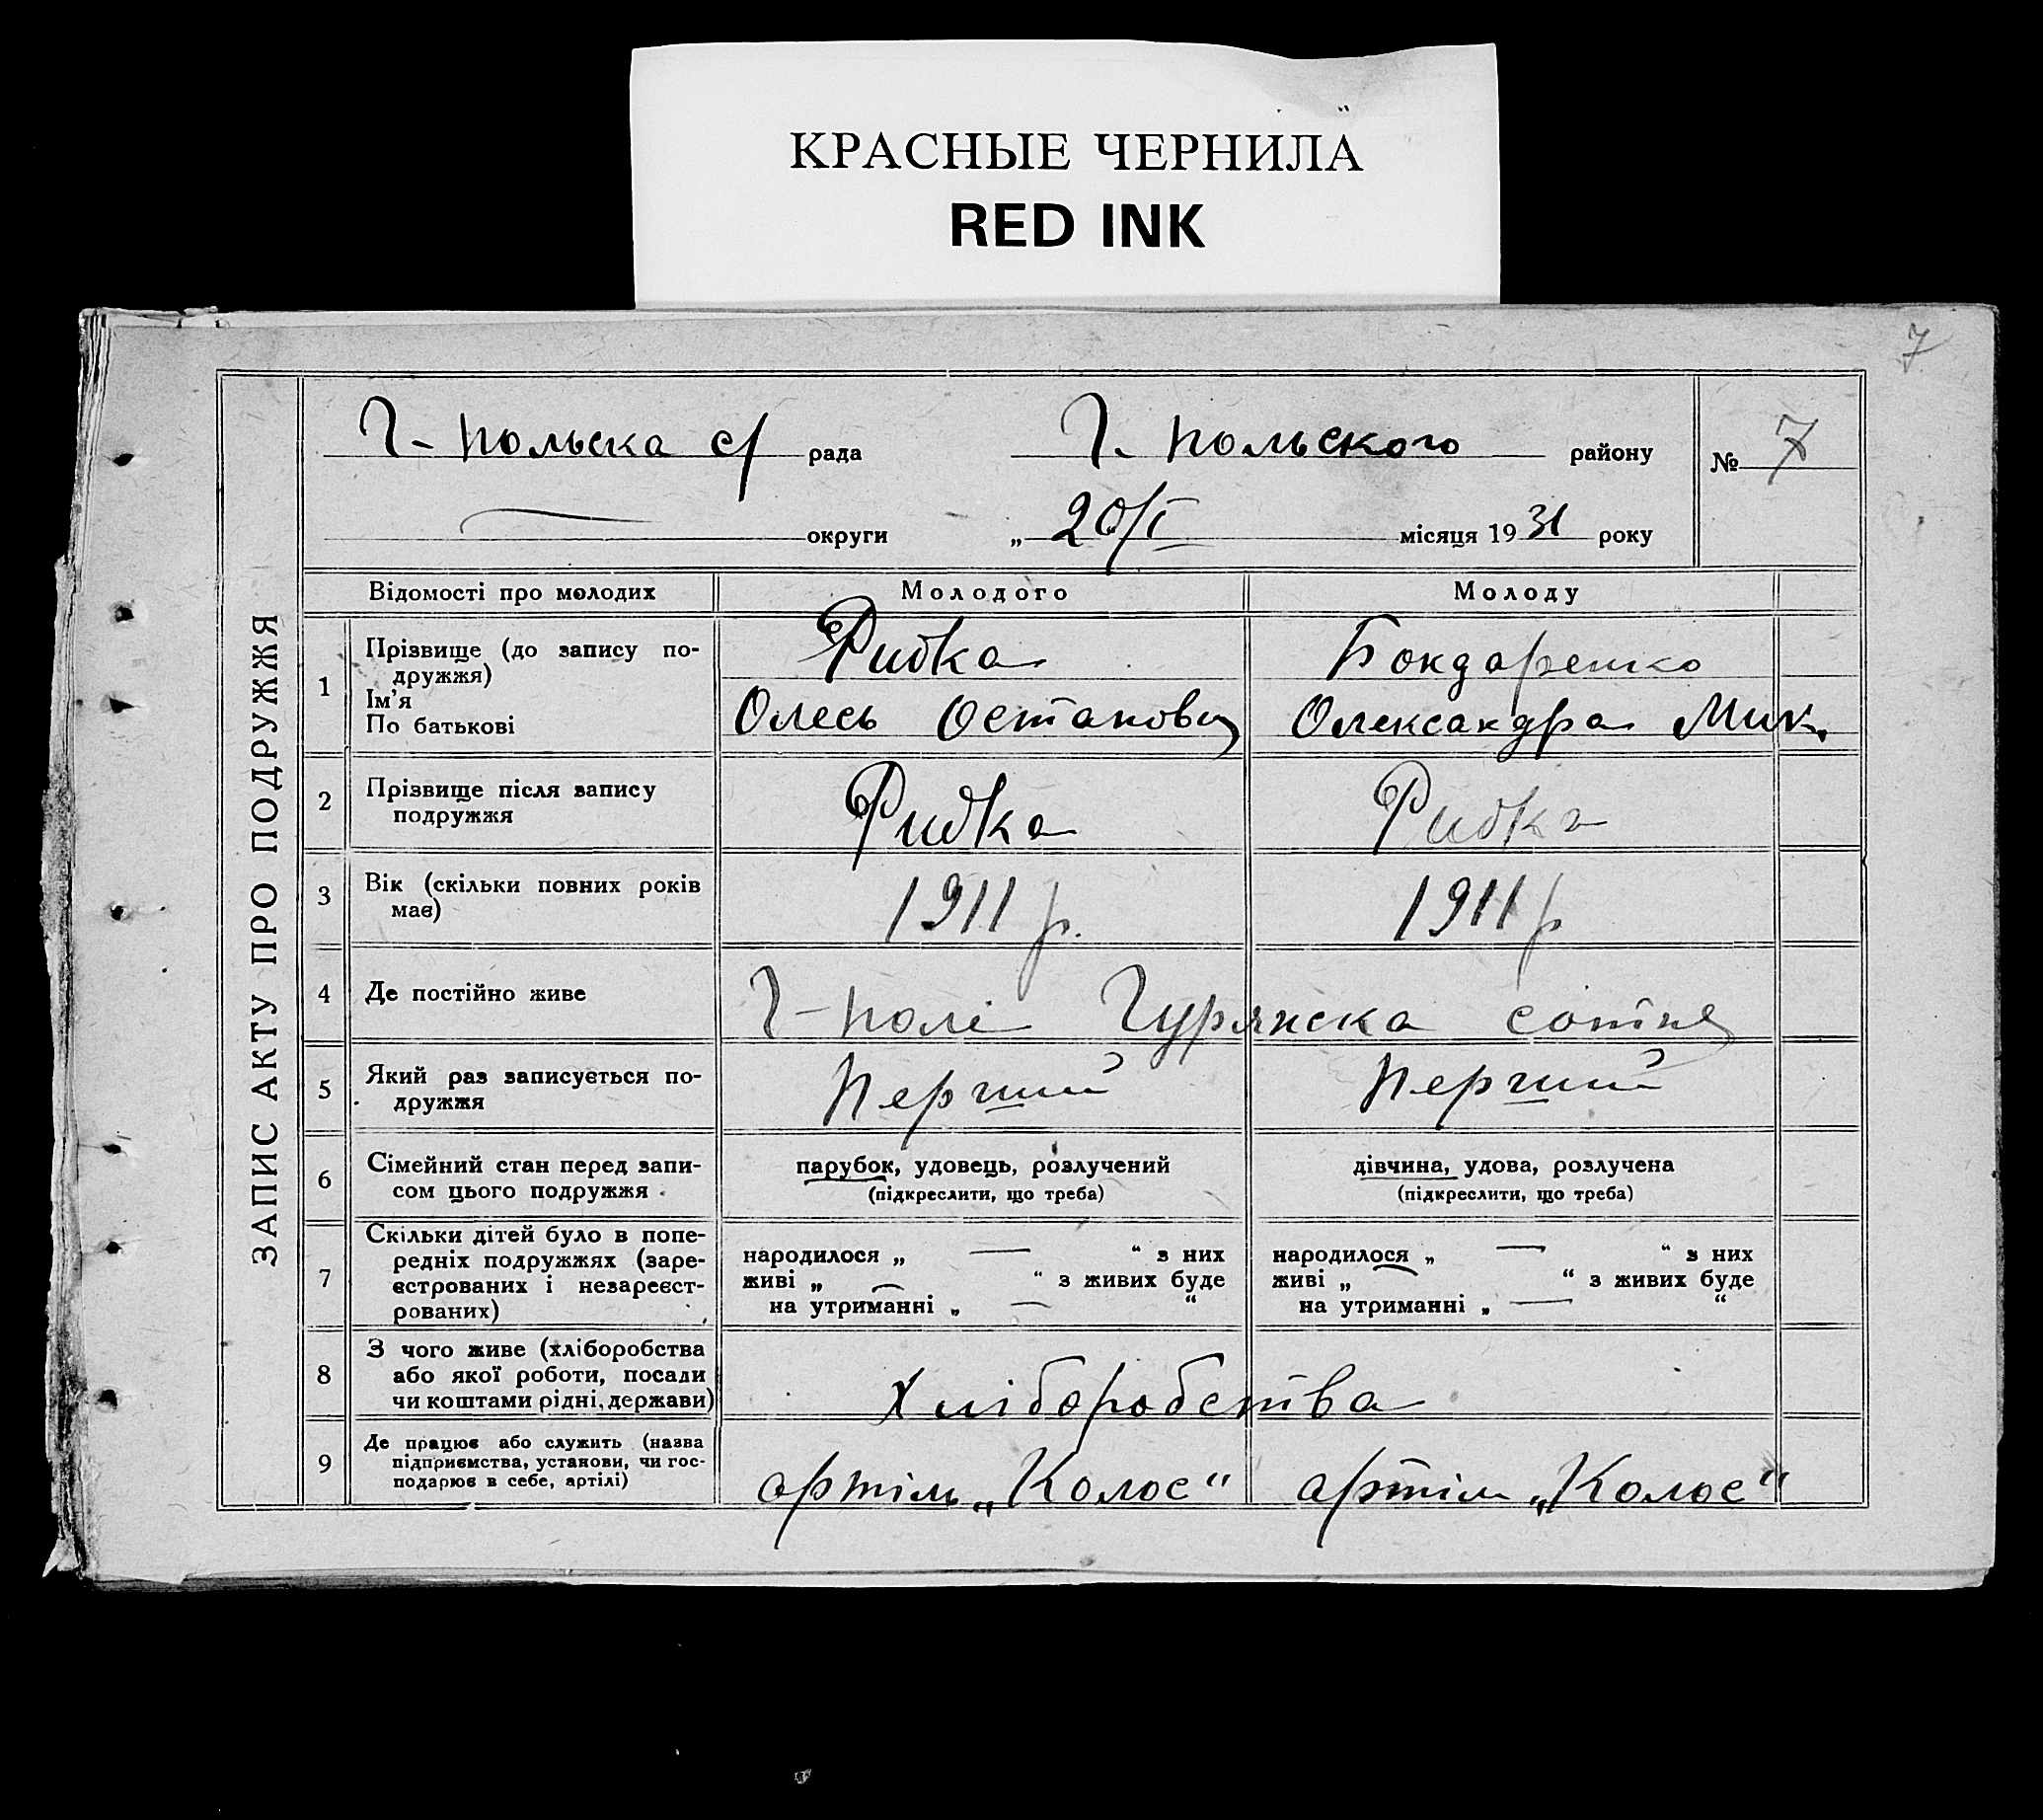 КРАСНЫЕ ЧЕРНИЛА
RED INK
7
ЗАПИС АКТУ ПРО ПОДРУЖЖЯ
Г-польска с/ рада Г. польського району № 7
округи „ 20/I місяця 1931 року
Відомості про молодих Молодого Молоду
1 Прізвище (до запису по-
дружжя)
Ім'я
По батькові
Рибка Бондаренко
Олесь Остапович Олександра Мик.
2 Прізвище після запису
подружжя
Рибка Рибка
3 Вік (скільки повних років
має)
1911 р. 1911 р
4 Де постійно живе Г-полі Гурянска сотня
5 Який раз записується по-
дружжя
Перший Перший
6 Сімейний стан перед запи-
сом цього подружжя
парубок, удовець, розлучений
(підкреслити, що треба)
дівчина, удова, розлучена
(підкреслити, що треба)
7 Скільки дітей було в попе-
редніх подружжях (заре-
єстрованих і незареєст-
рованих)
народилося „ — “ з них
живі „ — “ з живих буде
на утриманні „ — “
народилося „ — “ з них
живі „ — “ з живих буде
на утриманні „ — “
8 З чого живе (хліборобства
або якої роботи, посади
чи коштами рідні, держави)
Хліборобства
9 Де працює або служить (назва
підприємства, установи, чи гос-
подарює в себе, артілі)
артіль „Колос“ артіль „Колос“